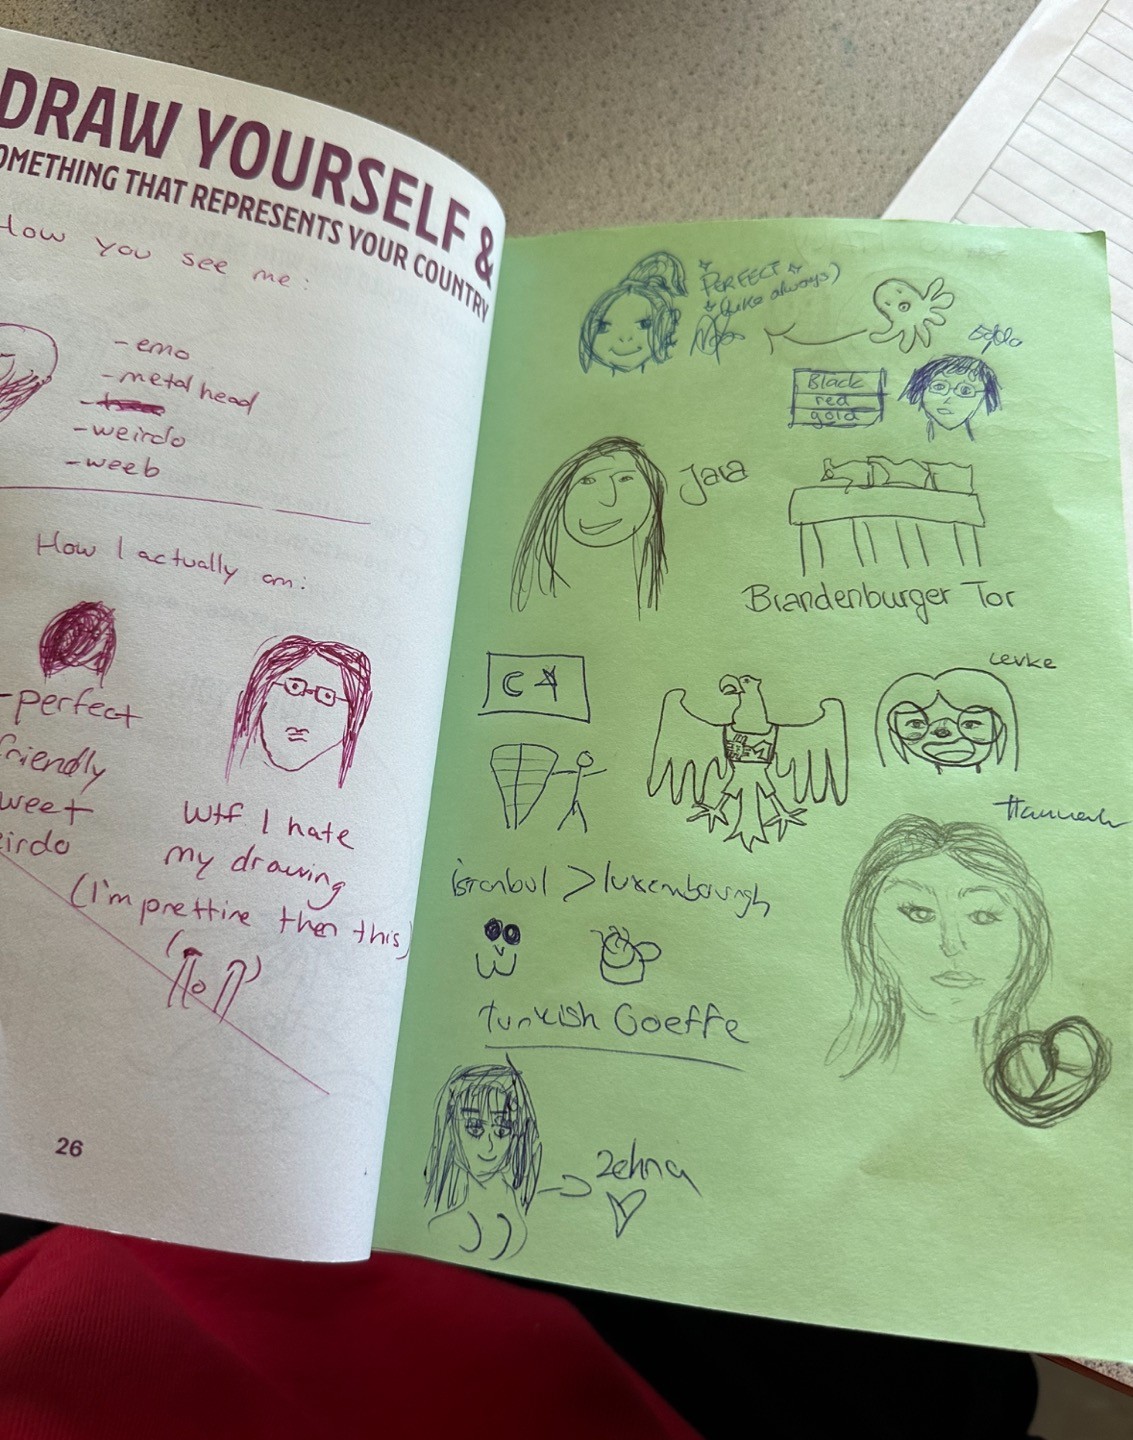 DRAW YOURSELF &
OMETHING THAT REPRESENTS YOUR COUNTRY
How you see me:
- emo
- metal head
- weirdo
- weeb
How I actually am:
- perfect
friendly
weet
eirdo
Wtf I hate
my drawing
(I'm prettire then this)
26
PERFECT
(like always)
Black
red
gold
Jara
Brandenburger Tor
Levke
Hannah
istanbul > luxembourgh
turkish Coeffe
Zehna